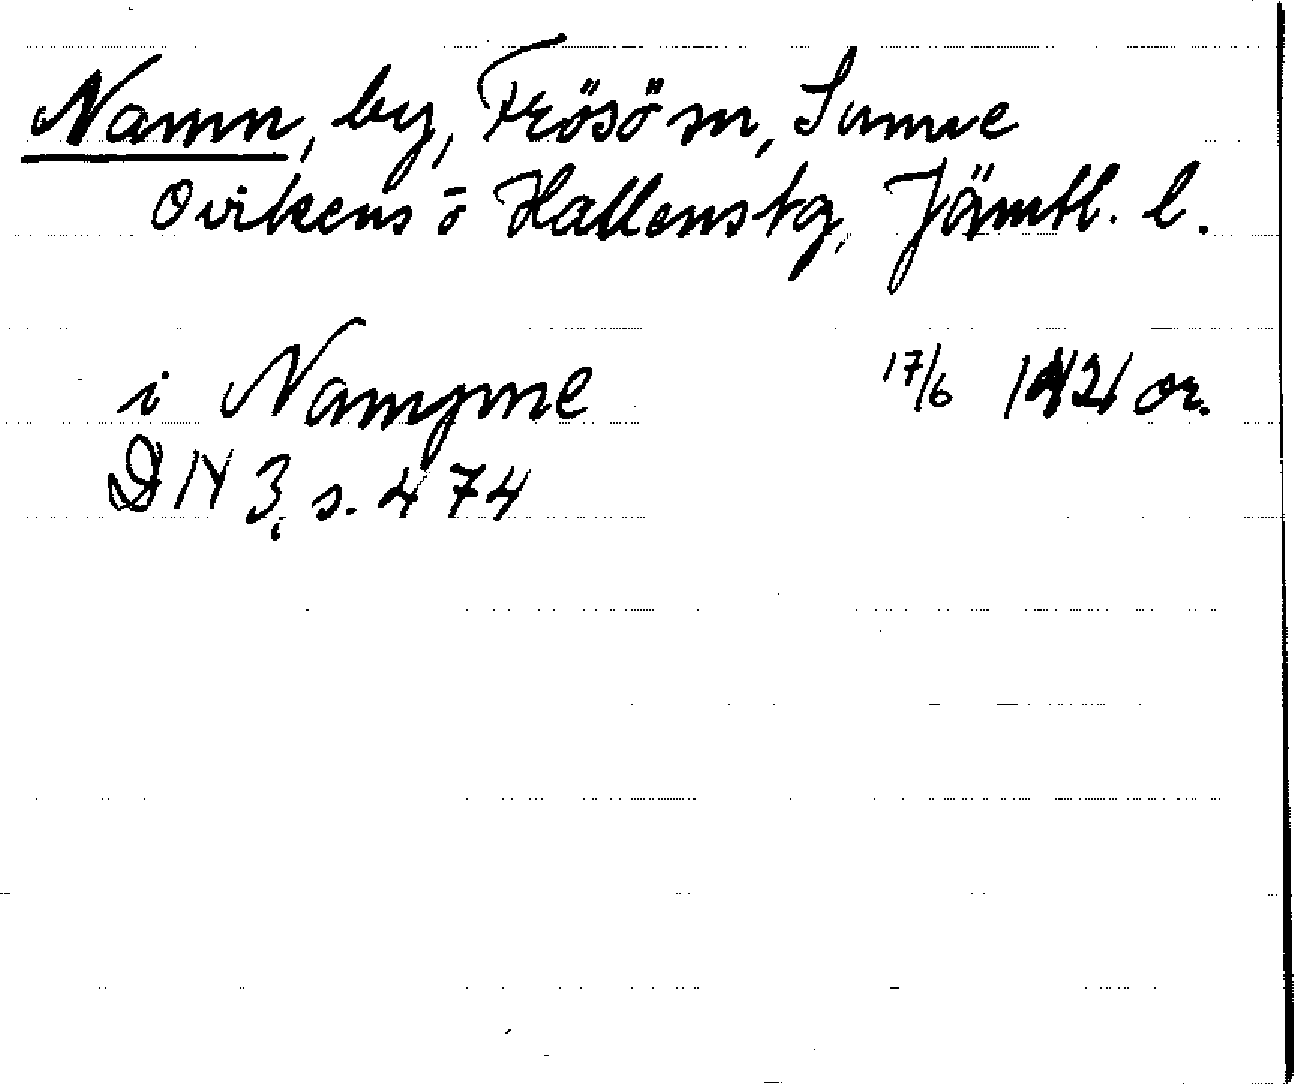 Namn, by, Frösö sn, Sunne
Ovikens o Hallens tg, Jämtl. l.
i Namyme 17/6 1421 or.
DN 3, s. 474